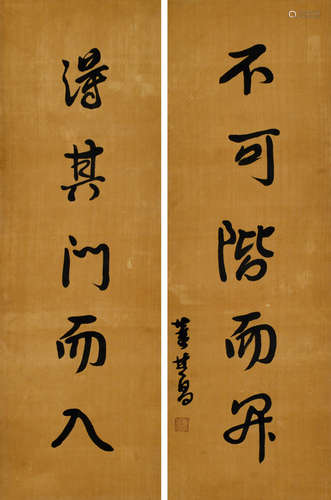 不可階而升
董其昌
得其門而入